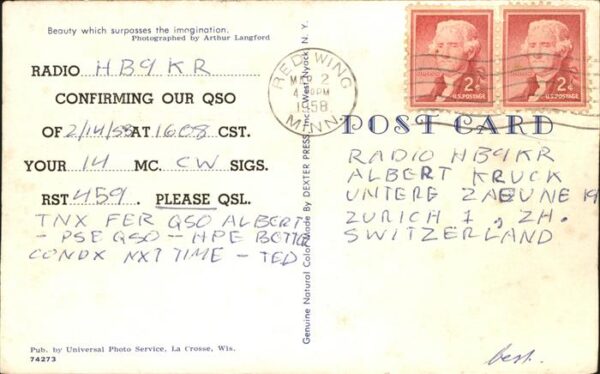 Beauty which surpasses the imagination.
Photographed by Arthur Langford
RADIO HB9KR
CONFIRMING OUR QSO
OF 2/14/58 AT 1608 CST.
YOUR 14 MC. CW SIGS.
RST 459. PLEASE QSL.
TNX FER QSO ALBERT
- PSE QSO - HPE BETTER
CONDX NXT TIME - TED
Pub. by Universal Photo Service, La Crosse, Wis.
74273
Genuine Natural Color Made By DEXTER PRESS, Inc., West Nyack, N. Y.
RED WING
2
PM
1958
MINN.
2¢ 2¢
U.S. POSTAGE U.S. POSTAGE
POST CARD
RADIO HB9KR
ALBERT KRUCK
UNTERE ZAEUNE 19
ZURICH 1, ZH.
SWITZERLAND
best.